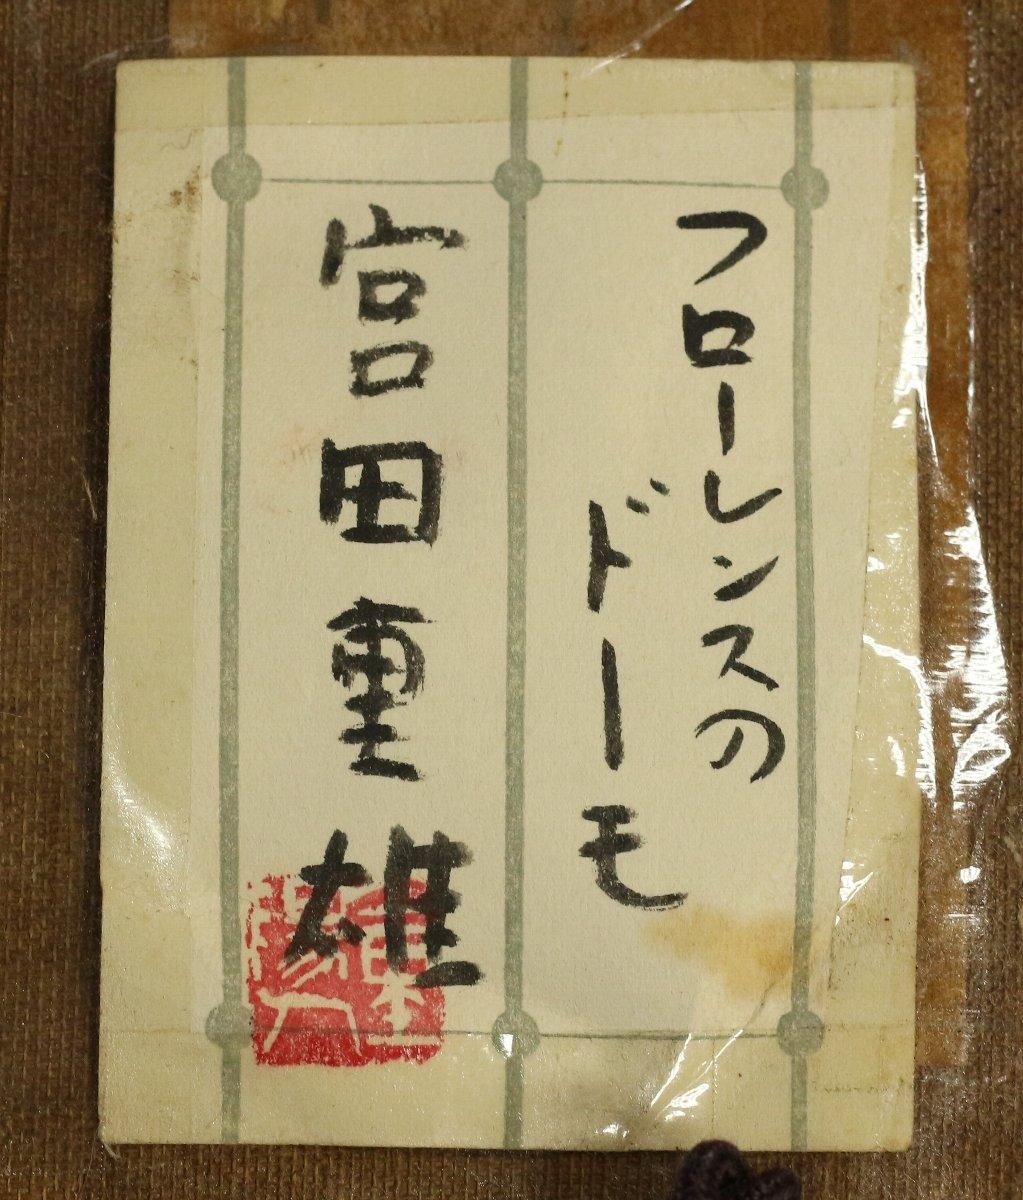 フローレンスの
ドーモ
宮田重雄